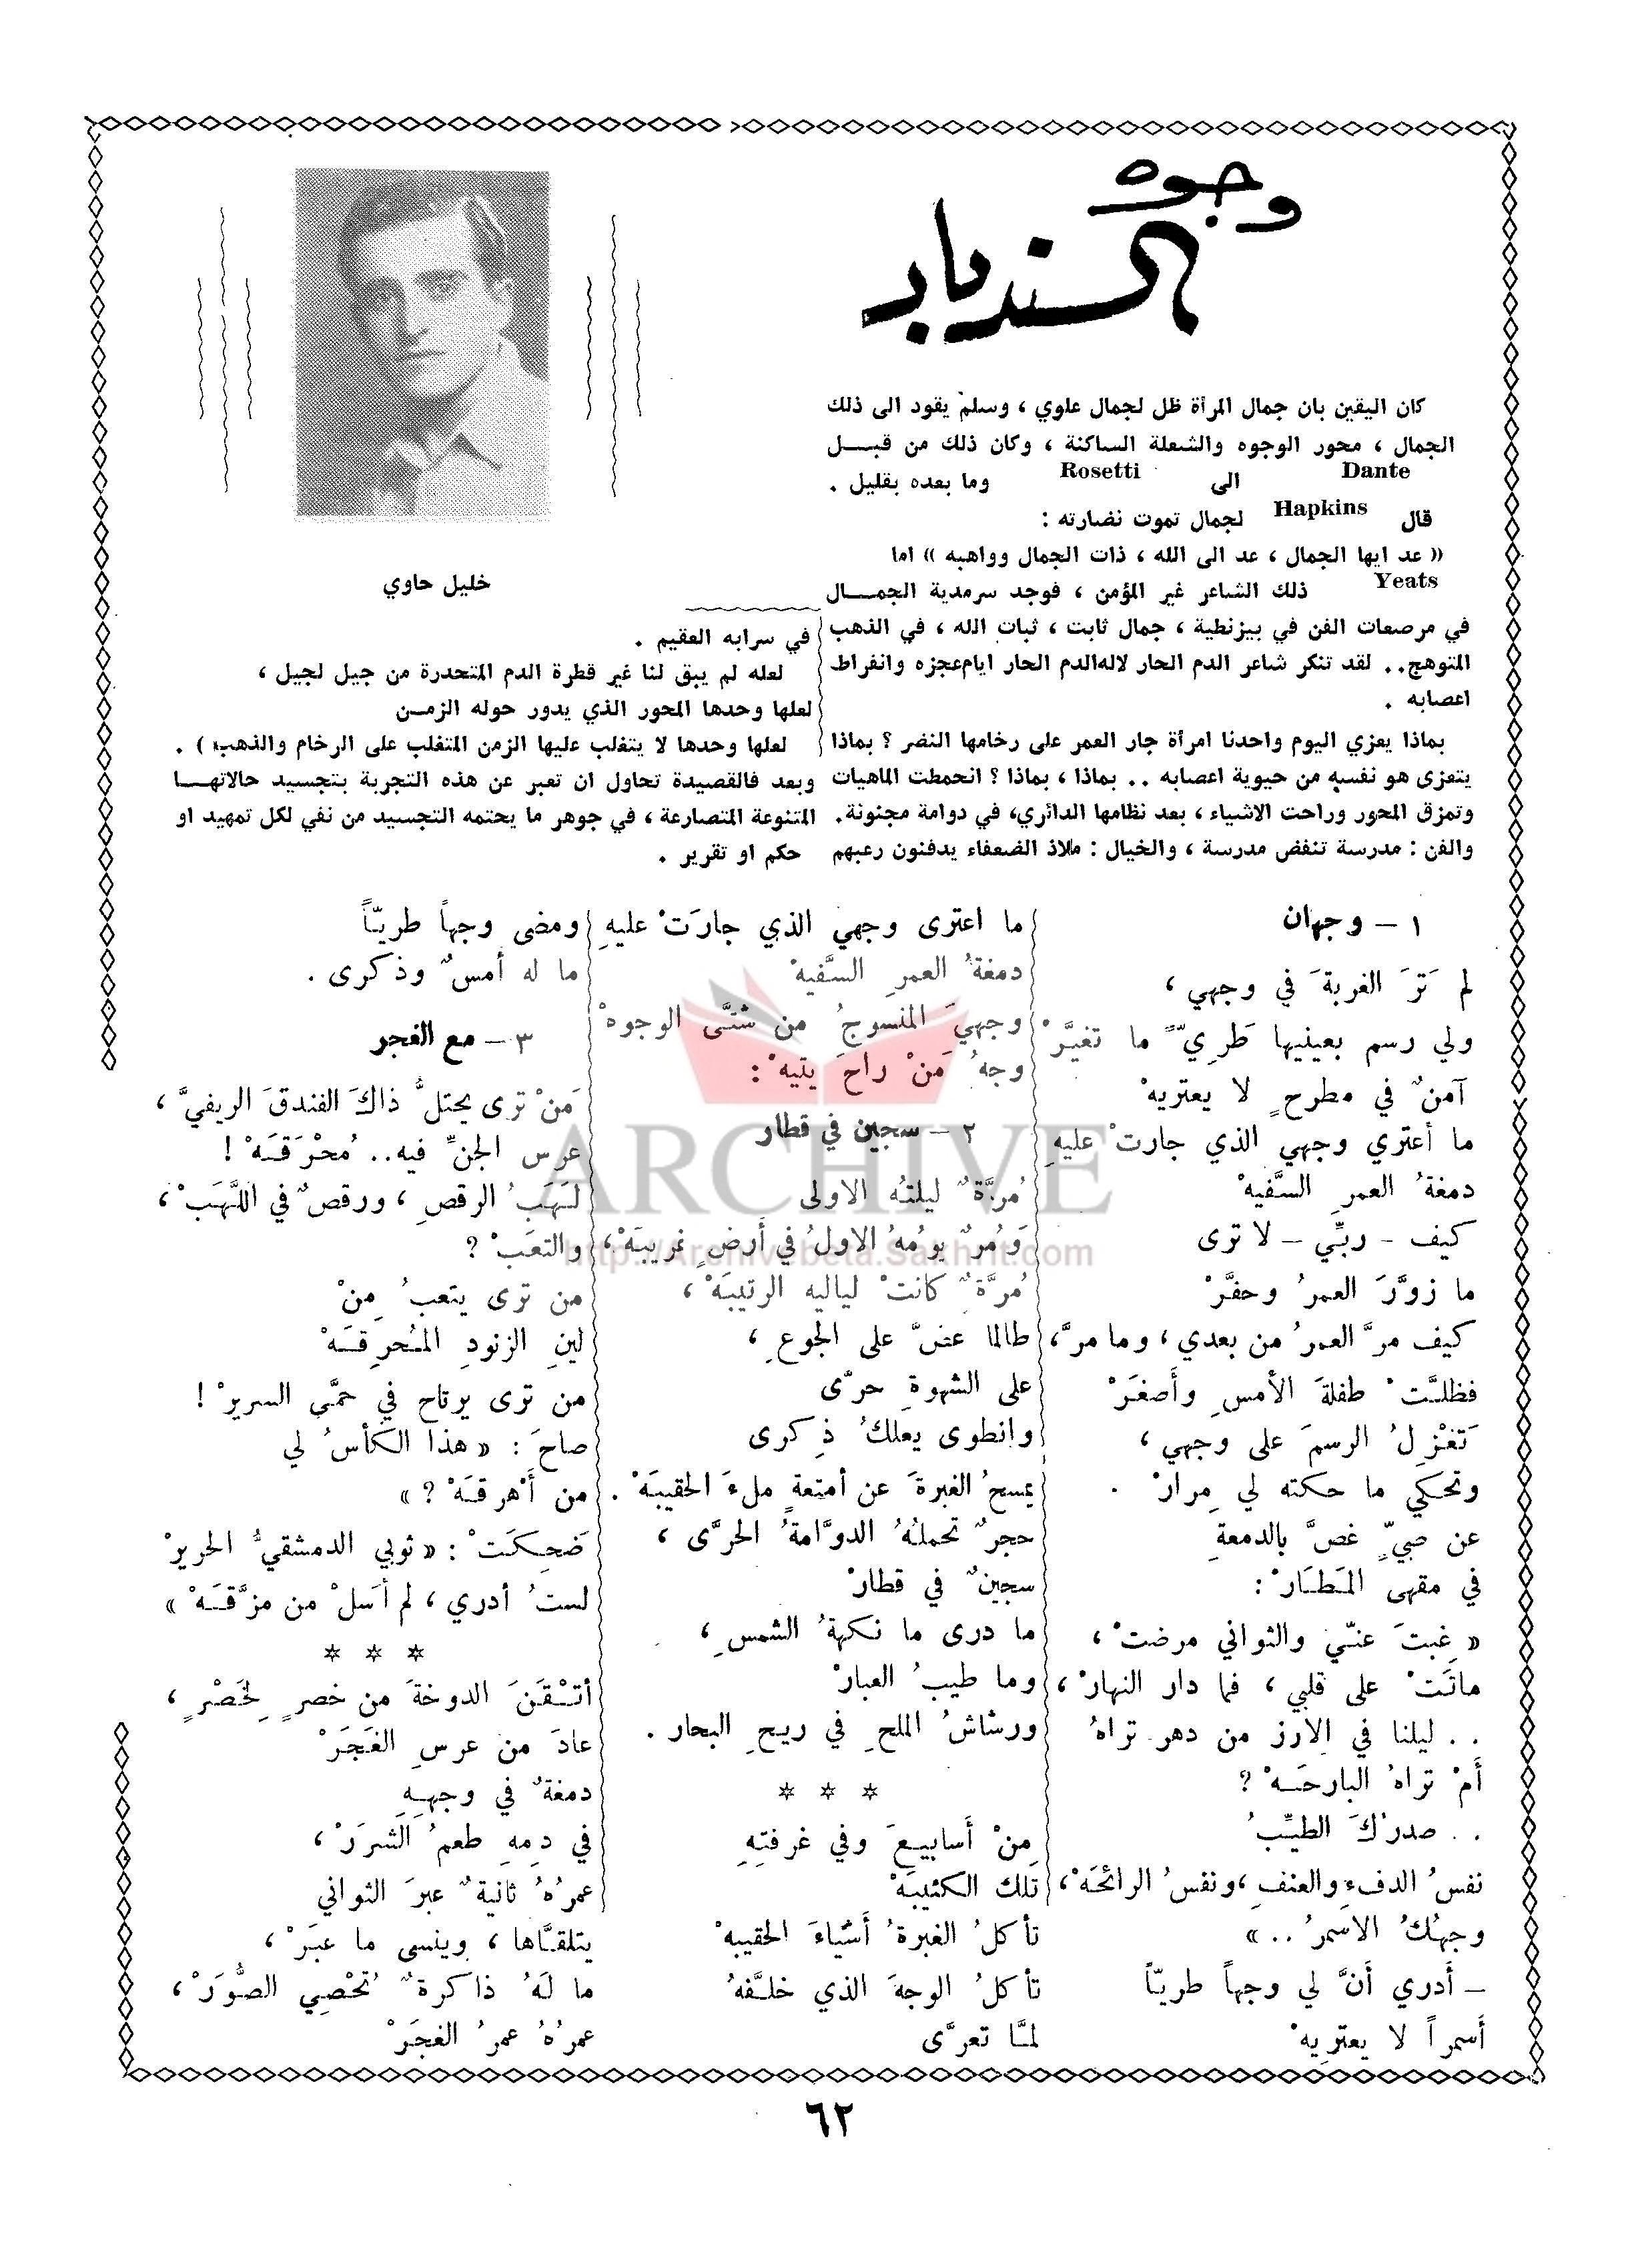 وجوه
السندباد
خليل حاوي
كان اليقين بان جمال المرأة ظل لجمال علوي ، وسلم يقود الى ذلك
الجمال ، محور الوجوه والشعلة الساكنة ، وكان ذلك من قبـــل
Dante الى Rosetti وما بعده بقليل .
قال Hapkins لجمال تموت نضارته :
« عد ايها الجمال ، عد الى الله ، ذات الجمال وواهبه » اما
Yeats ذلك الشاعر غير المؤمن ، فوجد سرمدية الجمـــال
في مرصعات الفن في بيزنطية ، جمال ثابت ، ثبات الله ، في الذهب
المتوهج.. لقد تنكر شاعر الدم الحار لاله الدم الحار ايام عجزه وانفراط
اعصابه .
بماذا يعزي اليوم واحدنا امرأة جار العمر على رخامها النضر ؟ بماذا
يتعزى هو نفسه من حيوية اعصابه .. بماذا ، بماذا ؟ انحمطت الماهيات
وتمزق المحور وراحت الاشياء ، بعد نظامها الدائري، في دوامة مجنونة.
والفن : مدرسة تنفض مدرسة ، والخيال : ملاذ الضعفاء يدفنون رعبهم
في سرابه العقيم .
لعله لم يبق لنا غير قطرة الدم المتحدرة من جيل لجيل ،
لعلها وحدها المحور الذي يدور حوله الزمـــن
لعلها وحدها لا يتغلب عليها الزمن المتغلب على الرخام والذهب ) .
وبعد فالقصيدة تحاول ان تعبر عن هذه التجربة بتجسيد حالاتهـــا
المتنوعة المتصارعة ، في جوهر ما يحتمه التجسيد من نفي لكل تمهيد او
حكم او تقرير .
١ – وجهان
لم تَرَ الغربةَ في وجهي ،
ولي رسم بعينيها طَريٌّ ما تغيَّرْ
آمنٌ في مطرحٍ لا يعتريهْ
ما أعتري وجهي الذي جارتْ عليهِ
دمغةُ العمرِ السَّفيهْ
كيف – ربّي – لا ترى
ما زوَّرَ العمرُ وحفَّرْ
كيف مرَّ العمرُ من بعدي ، وما مرَّ ،
فظلَّتْ طفلةَ الأمسِ وأَصغَرْ
تَغْزِلُ الرسمَ على وجهي ،
وتحكي ما حكته لي مِرارْ .
عن صبيٍّ غصَّ بالدمعةِ
في مقهى المَطَارْ :
« غِبتَ عنّي والثواني مرضتْ ،
ماتَتْ على قلبي ، فما دار النهارْ ،
. . ليلنا في الارز من دهرٍ تراهُ
أَمْ تراهُ البارحَهْ ؟
. . صدرُكَ الطيّبُ
نفسُ الدفءِ والعنفِ ، ونفسُ الرائحَهْ ،
وجهُكُ الاسمرُ .. »
– أدري أَنَّ لي وجهاً طريّاً
أسمراً لا يعتريهْ
ما اعترى وجهي الذي جارَتْ عليهِ
دمغةُ العمرِ السَّفيهْ
وجهيَ المنسوجُ من شتَّى الوجوهْ
وجهُ مَنْ راحَ يتيهْ :
٢ – سجين في قطار
مُرَّةٌ ليلتُه الاولى
وَمُرٌ يومُهُ الاولُ في أرضٍ غريبَهْ ،
مُرَّةٌ كانتْ لياليه الرتيبَهْ ،
طالما عضَّ على الجوعِ ،
على الشهوةِ حرَّى
وانطوى يعلكُ ذِكرى
يمسحُ الغبرةَ عن أمتعةٍ ملءَ الحقيبَهْ .
حجرٌ تحملُهُ الدوَّامةُ الحرَّى ،
سجينٌ في قطارْ
ما درى ما نكهةُ الشمسِ ،
وما طيبُ الغبارْ
ورشاشُ الملحِ في ريحِ البحار .
* * *
مِنْ أَسابيعَ وفي غرفتِهِ
تلك الكئيبَهْ
تأكلُ الغبرةُ أَشياءَ الحقيبهْ
تأكلُ الوجهَ الذي خلَّفهُ
لمَّا تعرَّى
ومضى وجهاً طريّاً
ما له أمسٌ وذكرى .
٣ – مع الغجر
مَنْ ترى يحتلُّ ذاكَ الفندقَ الريفيَّ ،
عرس الجنِّ فيه.. مُحْرَقَهْ !
لَهَبُ الرقصِ ، ورقصٌ في اللَّهَبْ ،
والتعَبْ ؟
من ترى يتعبُ مِنْ
لينِ الزنودِ المُحرِقَهْ
من ترى يرتاح في حمَّى السريرْ !
صاحَ : « هذا الكأسُ لي
من أَهرقَهْ ؟ »
ضَحِكَتْ : « ثوبي الدمشقيُّ الحريرْ
لستُ أدري ، لم أَسلْ من مزَّقَهْ »
* * *
أَتقَنَ الدوخةَ من خصرٍ لِخَصْرٍ ،
عادَ من عرسِ الغَجَرْ
دمغةٌ في وجهِهِ
في دمِهِ طعمُ الشرَرْ ،
عمرُهُ ثانيةٌ عبرَ الثواني
يتلقَّاها ، وينسى ما عبَرْ ،
ما لَهُ ذاكرةٌ تُحْصِي الصُّوَرْ ،
عمرُهُ عمرُ الغجَرْ
ARCHIVE
http://Archivebeta.Sakhrit.com
٦٢